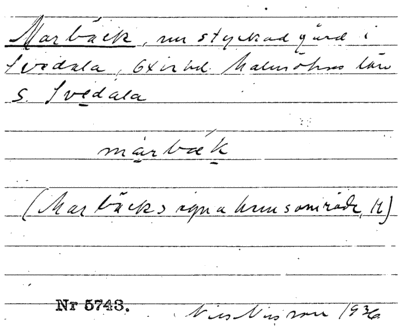 Marbäck, nu styckad gård i
Svedala, Oxie hd. Malmöhus län
S. Svedala
marbäk
(Marbäcks egnahemsområde, H)
Nr 5743.
Nils Nilsson 1936